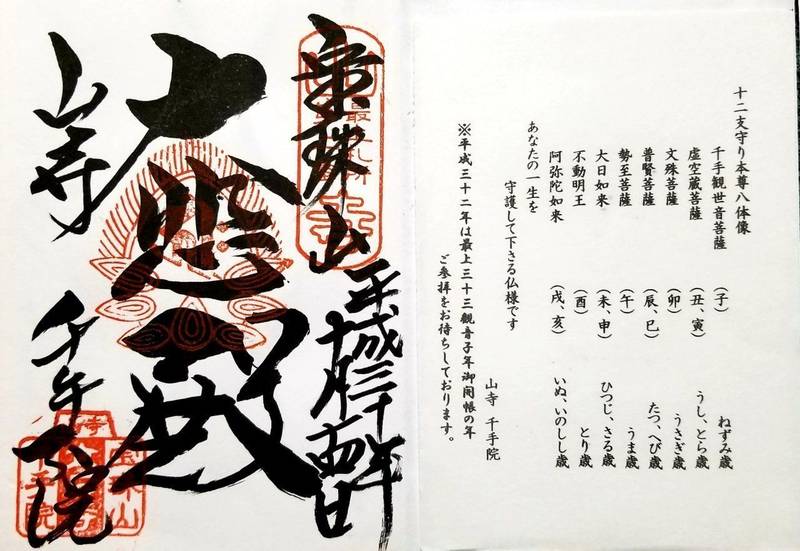 十二支守り本尊八体像
千手観世音菩薩 (子) ねずみ歳
虚空蔵菩薩 (丑、寅) うし、とら歳
文殊菩薩 (卯) うさぎ歳
普賢菩薩 (辰、巳) たつ、へび歳
勢至菩薩 (午) うま歳
大日如来 (未、申) ひつじ、さる歳
不動明王 (酉) とり歳
阿弥陀如来 (戌、亥) いぬ、いのしし歳
あなたの一生を
守護して下さる仏様です
山寺 千手院
※平成三十二年は最上三十三観音子年御開帳の年
ご参拝をお待ちしております。
宝珠山
平成三十年
十月
大悲殿
山寺 千手院